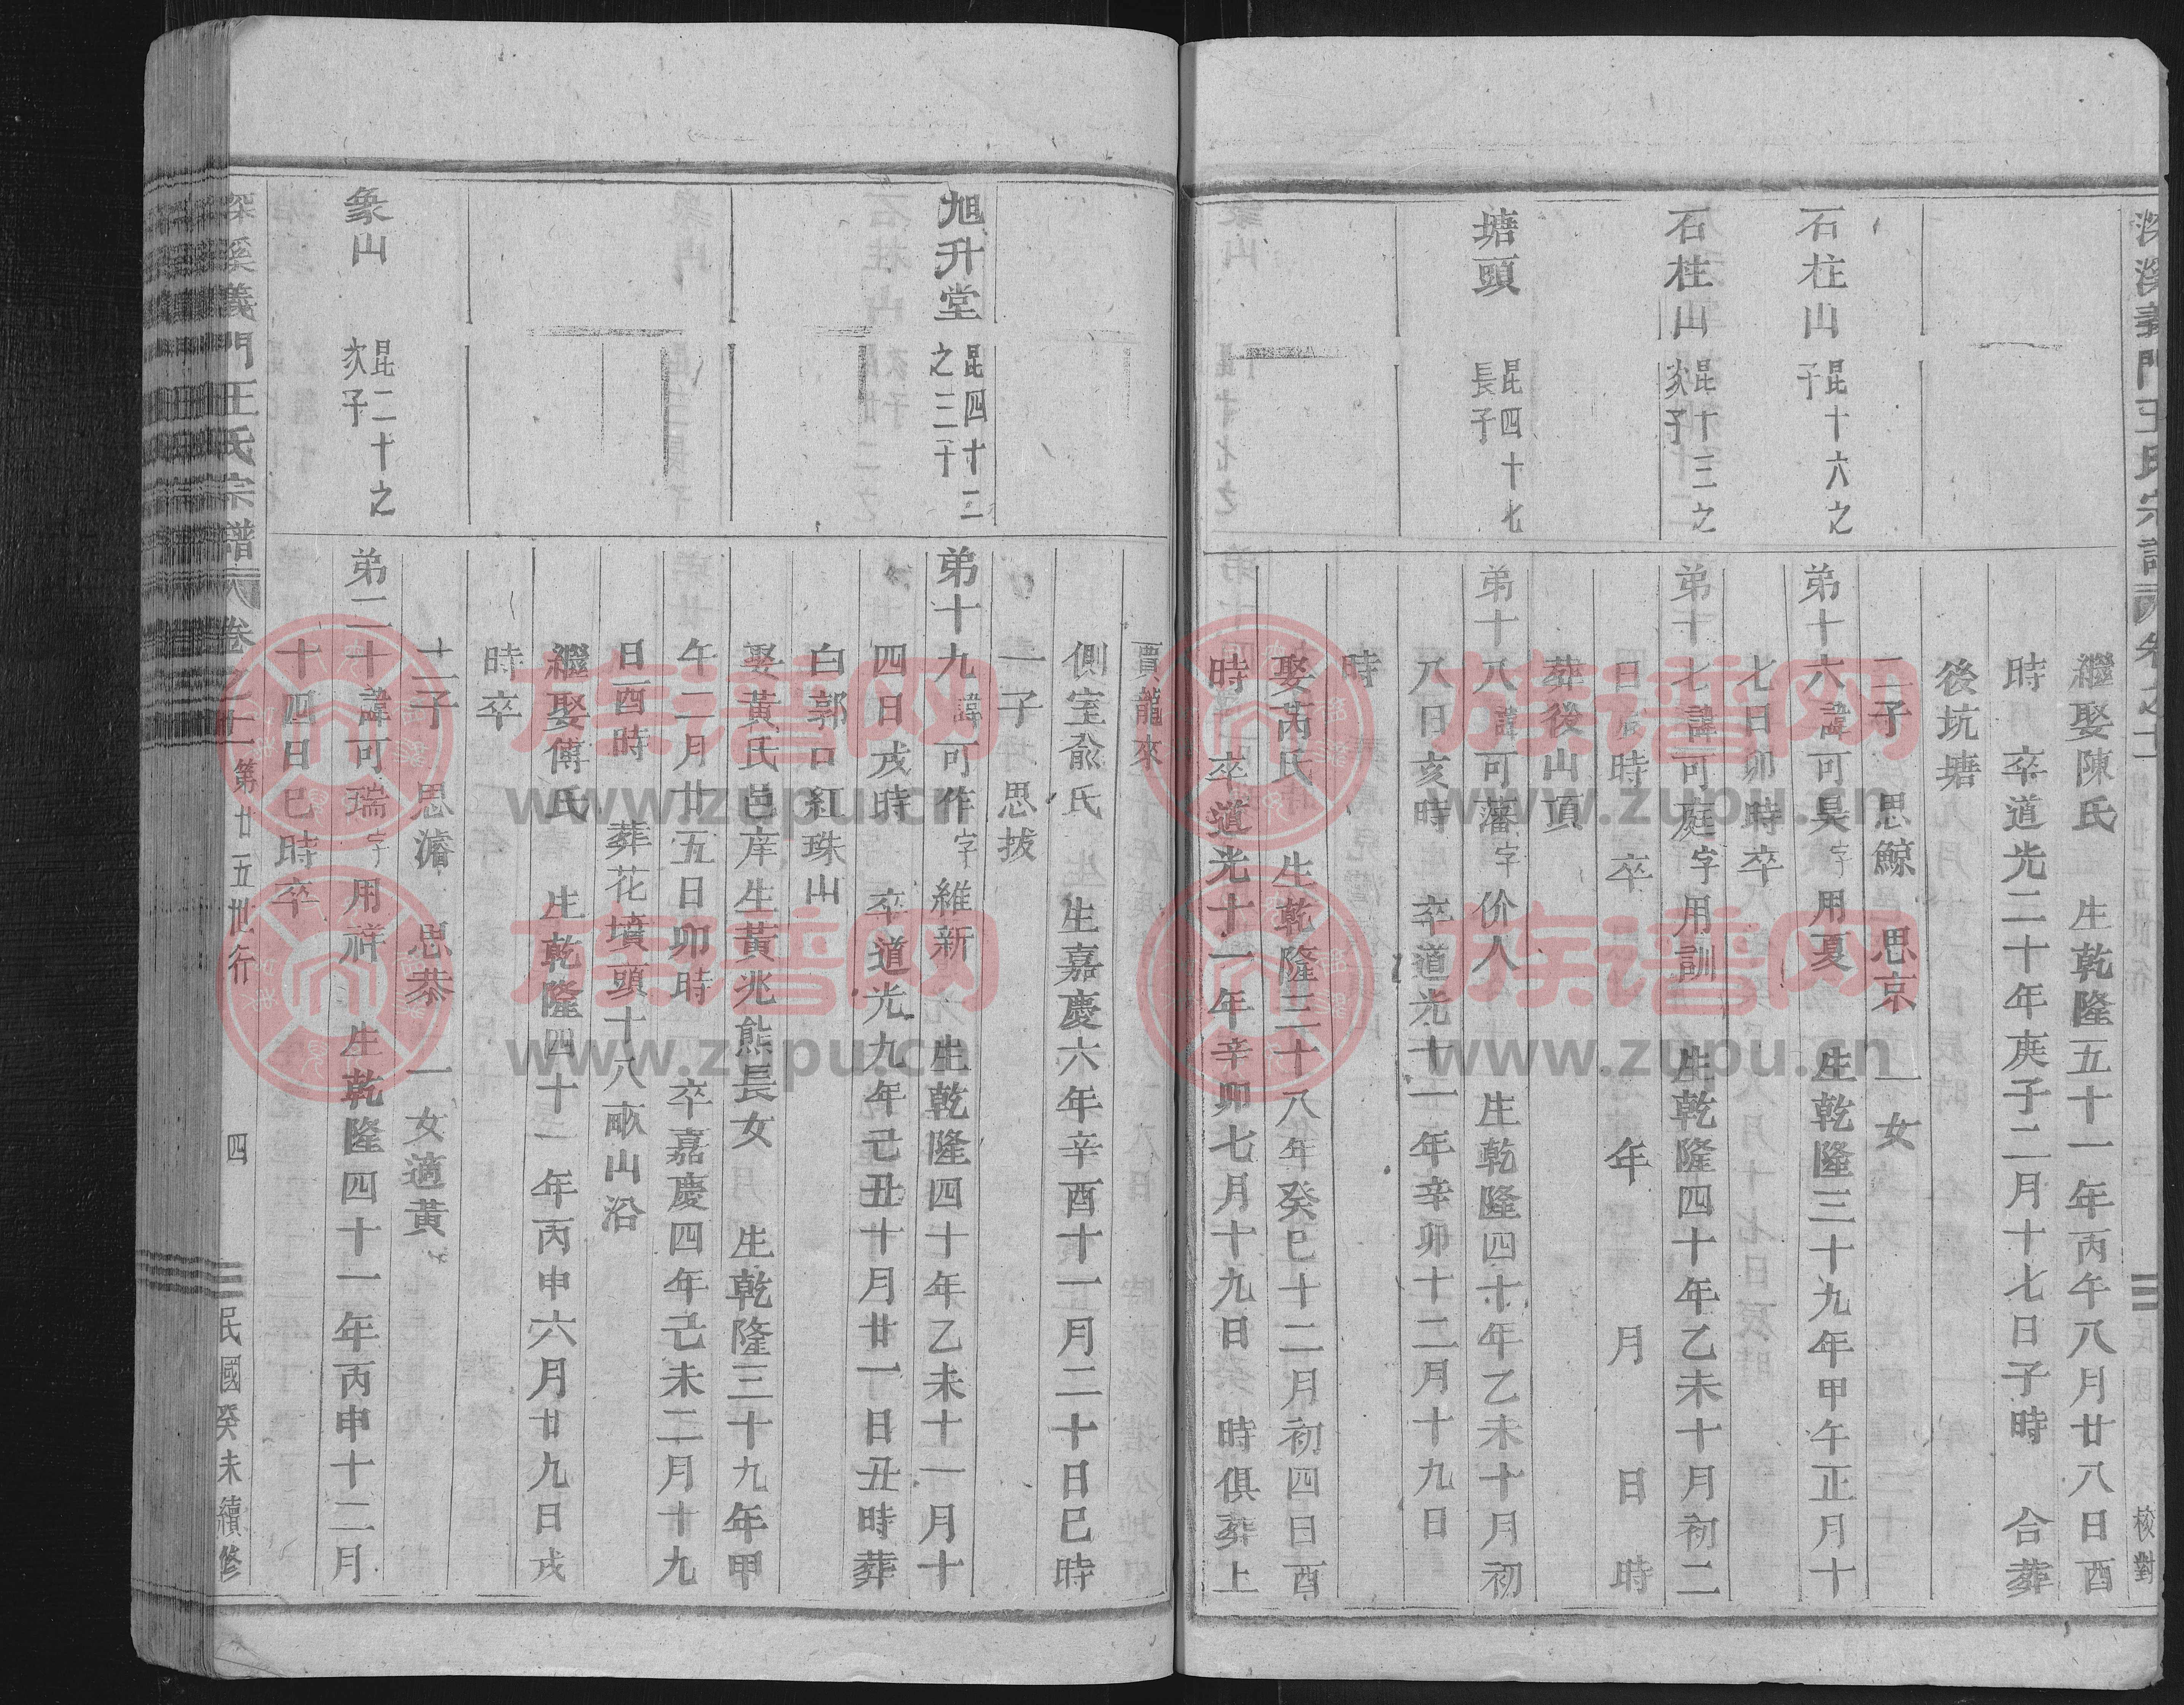 深溪義門王氏宗譜 卷之十
校對
繼娶陳氏 生乾隆五十一年丙午八月廿八日酉
時 卒道光二十年庚子二月十七日子時 合葬
後坑塘
二子 思鯨 思京 一女
石柱山 昆十六之子
弟十六諱可昊字用夏 生乾隆三十九年甲午正月十
七日卯時卒
石柱山 昆十三之次子
弟十七諱可庭字用訓 生乾隆四十年乙未十月初二
日辰時 卒 年 月 日 時
葬後山頂
塘頭 昆四十七長子
弟十八諱可藩字价人 生乾隆四十年乙未十月初
八日亥時 卒道光十一年辛卯十二月十九日
時
娶芮氏 生乾隆三十八年癸巳十二月初四日酉
時 卒道光十一年辛卯七月十九日 時俱葬上
賈龍來
側室俞氏 生嘉慶六年辛酉十一月二十日巳時
一子 思拔
旭升堂 昆四十二之三子
弟十九諱可作字維新 生乾隆四十年乙未十一月十
四日戌時 卒道光九年己丑十月廿一日丑時葬
白郭口紅珠山
娶黃氏邑庠生黃兆熊長女 生乾隆三十九年甲
午二月廿五日卯時 卒嘉慶四年己未二月十九
日酉時 葬花墳頭十八畝山沿
繼娶傅氏 生乾隆四十一年丙申六月廿九日戌
時卒
二子 思濬 思恭 一女適黃
象山 昆二十之次子
弟二十諱可瑞字用祥 生乾隆四十一年丙申十二月
十四日巳時卒
深溪義門王氏宗譜 卷之十 第廿五世行 四 民國癸未續修
族谱网
www.zupu.cn
族谱网
www.zupu.cn
族谱网
www.zupu.cn
族谱网
www.zupu.cn